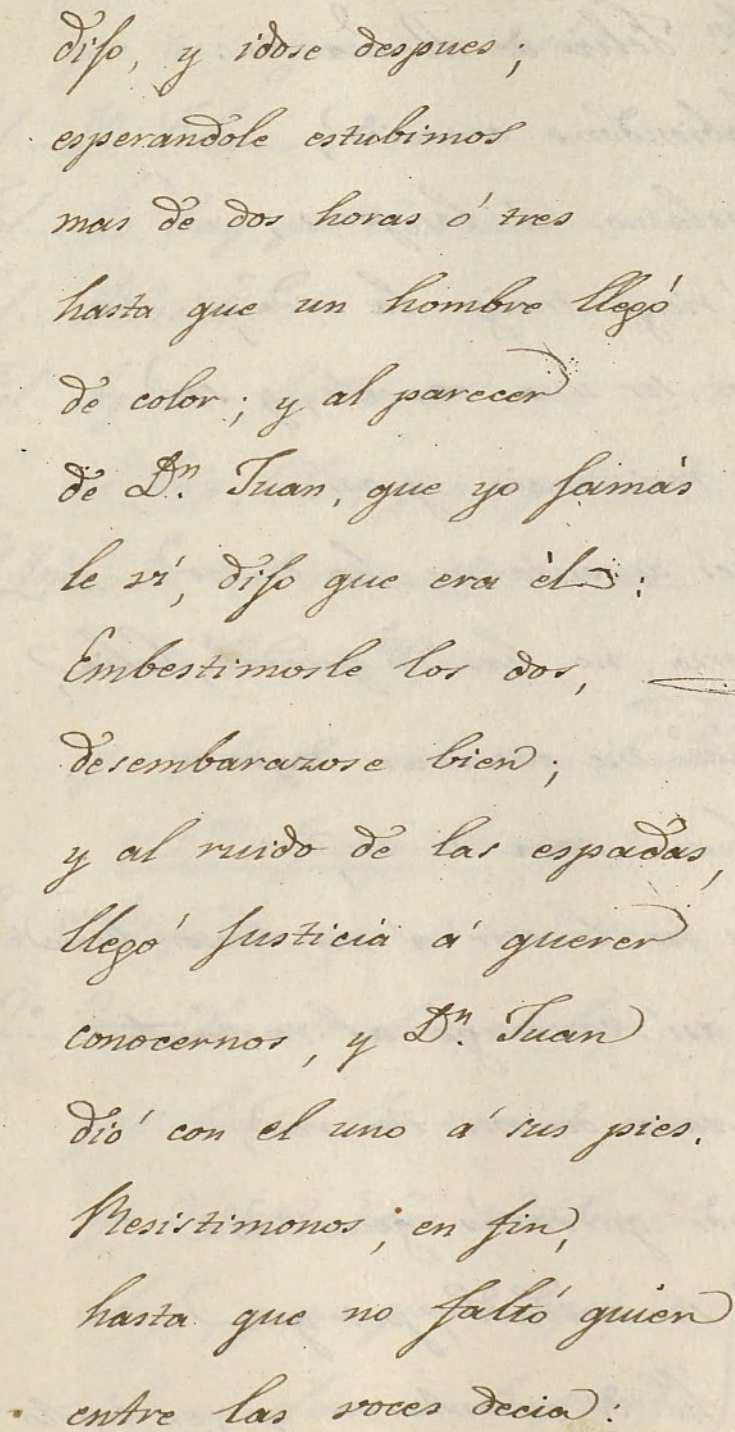 dijo, y idose despues;
esperandole estubimos
mas de dos horas ó tres
hasta que un hombre llegó
de color; y al parecer
de Dn. Juan, que yo jamás
le ví, dijo que era èl:
Embestimosle los dos,
desembarazose bien;
y al ruido de las espadas,
llegó justicia á querer
conocernos, y Dn. Juan
dió con el uno á sus pies.
Resistimonos, en fin,
hasta que no faltó quien
entre las voces decia: